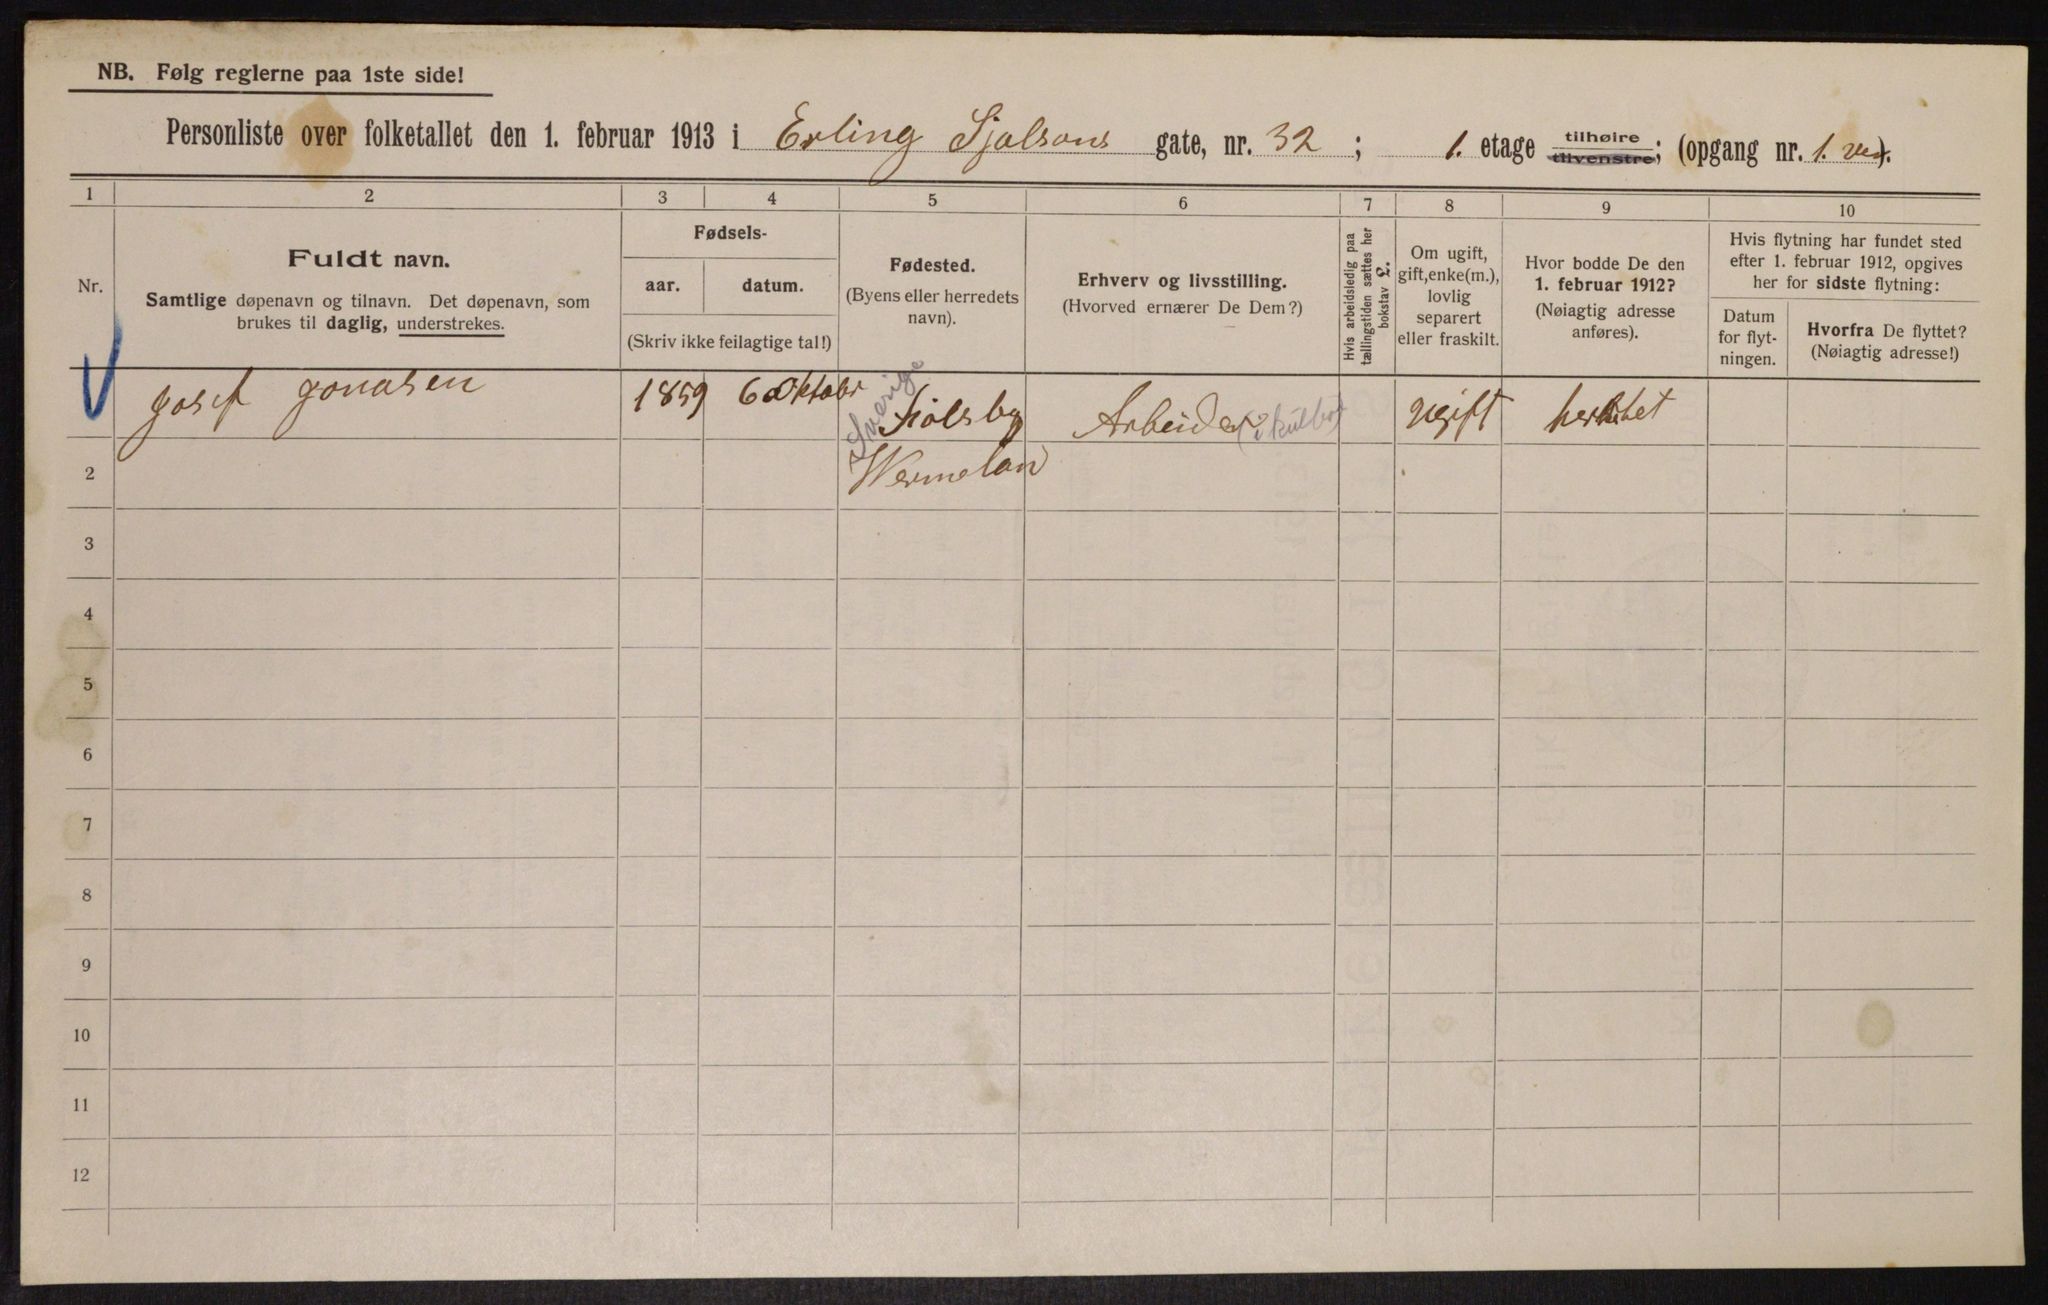 NB. Følg reglerne paa 1ste side!
Personliste over folketallet den 1. februar 1913 i Erling Sjalsons gate, nr. 32 ; 1. etage tilhøire tilvenstre; (opgang nr. 1. ).
1 2 3 4 5 6 7 8 9 10
Nr.
Fuldt navn.
Samtlige døpenavn og tilnavn. Det døpenavn, som
brukes til daglig, understrekes.
Fødsels-
aar. datum.
(Skriv ikke feilagtige tal!)
Fødested.
(Byens eller herredets
navn).
Erhverv og livsstilling.
(Hvorved ernærer De Dem?)
Hvis arbeidsledig paa
tællingstiden sættes her
bokstav £.
Om ugift,
gift, enke(m.),
lovlig
separert
eller fraskilt.
Hvor bodde De den
1. februar 1912?
(Nøiagtig adresse
anføres).
Hvis flytning har fundet sted
efter 1. februar 1912, opgives
her for sidste flytning:
Datum
for flyt-
ningen.
Hvorfra De flyttet?
(Nøiagtig adresse!)
Josef Jonasen 1859 6 Oktobr Arbeider ugift
Sverige
Wermelan
2
3
4
5
6
7
8
9
10
11
12